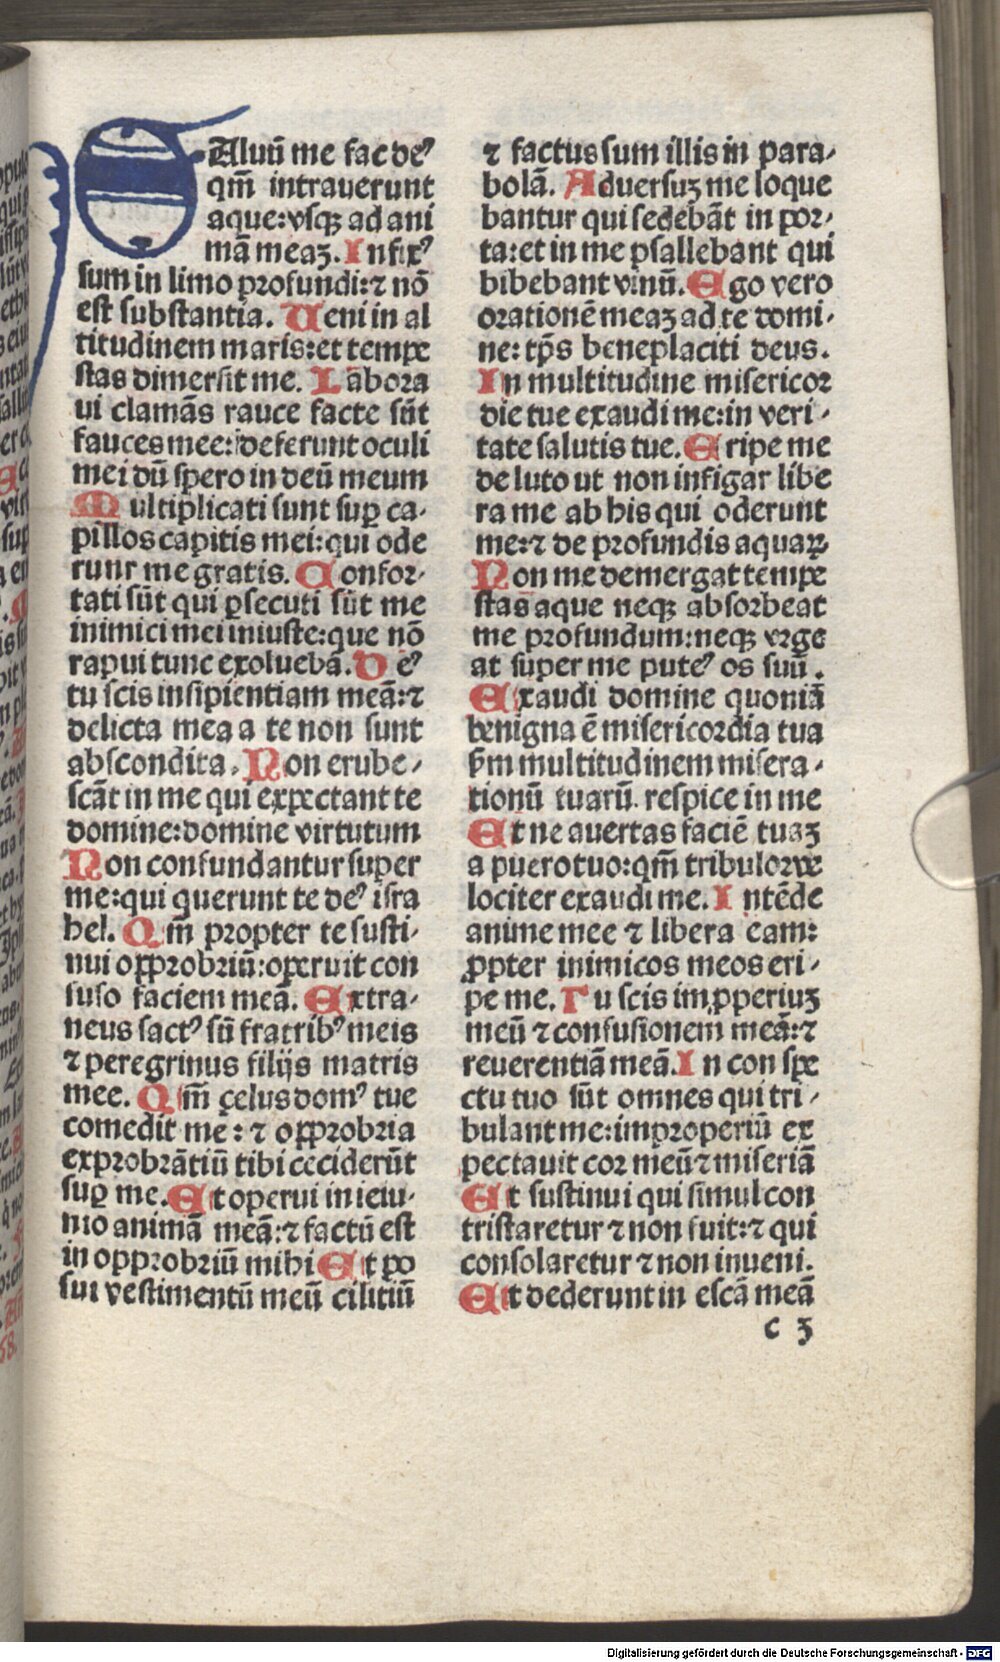 SAluū me fac deꝰ
qm̄ intrauerunt
aque: vsqꝫ ad ani
mā meaꝫ. Infixꝰ
sum in limo profundi: ⁊ nō
est substantia. Ueni in al
titudinem maris: et tempe
stas dimersit me. Labora
ui clamās rauce facte sūt
fauces mee: deferunt oculi
mei dū spero in deū meum
Multiplicati sunt suꝑ ca-
pillos capitis mei: qui ode
runt me gratis. Confor-
tati sūt qui ꝑsecuti sūt me
inimici mei iniuste: que nō
rapui tunc exoluebā. Deꝰ
tu scis insipientiam meā: ⁊
delicta mea a te non sunt
abscondita. Non erube-
scāt in me qui expectant te
domine: domine virtutum
Non confundantur super
me: qui querunt te deꝰ isra
hel. Qm̄ propter te susti-
nui opprobriū: operuit con
fusio faciem meā. Extra-
neus factꝰ sū fratribꝰ meis
⁊ peregrinus filijs matris
mee. Qm̄ çelus domꝰ tue
comedit me: ⁊ opprobria
exprobrātiū tibi ceciderūt
suꝑ me. Et operui in ieiu-
nio animā meā: ⁊ factū est
in opprobriū mihi Et po
sui vestimentū meū ciliciū
⁊ factus sum illis in para-
bolā. Aduersuꝫ me loque
bantur qui sedebāt in por-
ta: et in me psallebant qui
bibebant vinū. Ego vero
orationē meaꝫ ad te domi-
ne: tp̄s beneplaciti deus.
In multitudine misericor
die tue exaudi me: in veri-
tate salutis tue. Eripe me
de luto ut non infigar libe
ra me ab his qui oderunt
me: ⁊ de profundis aquaꝝ
Non me demergat tempe
stas aque neqꝫ absorbeat
me profundum: neqꝫ vrge
at super me puteꝰ os suū.
Exaudi domine quoniā
benigna ē misericordia tua
ẜm multitudinem misera-
tionū tuarū respice in me
Et ne auertas faciē tuaꝫ
a puero tuo: qm̄ tribulor ve
lociter exaudi me. Intēde
anime mee ⁊ libera eam:
ꝓpter inimicos meos eri-
pe me. Tu scis imꝓperiuꝫ
meū ⁊ confusionem meā: ⁊
reuerentiā meā. In conspe
ctu tuo sūt omnes qui tri-
bulant me: improperiū ex
pectauit cor meū ⁊ miseriā
Et sustinui qui simul con
tristaretur ⁊ non fuit: ⁊ qui
consolaretur ⁊ non inueni.
Et dederunt in escā meā
c 3
Digitalisierung gefördert durch die Deutsche Forschungsgemeinschaft - DFG